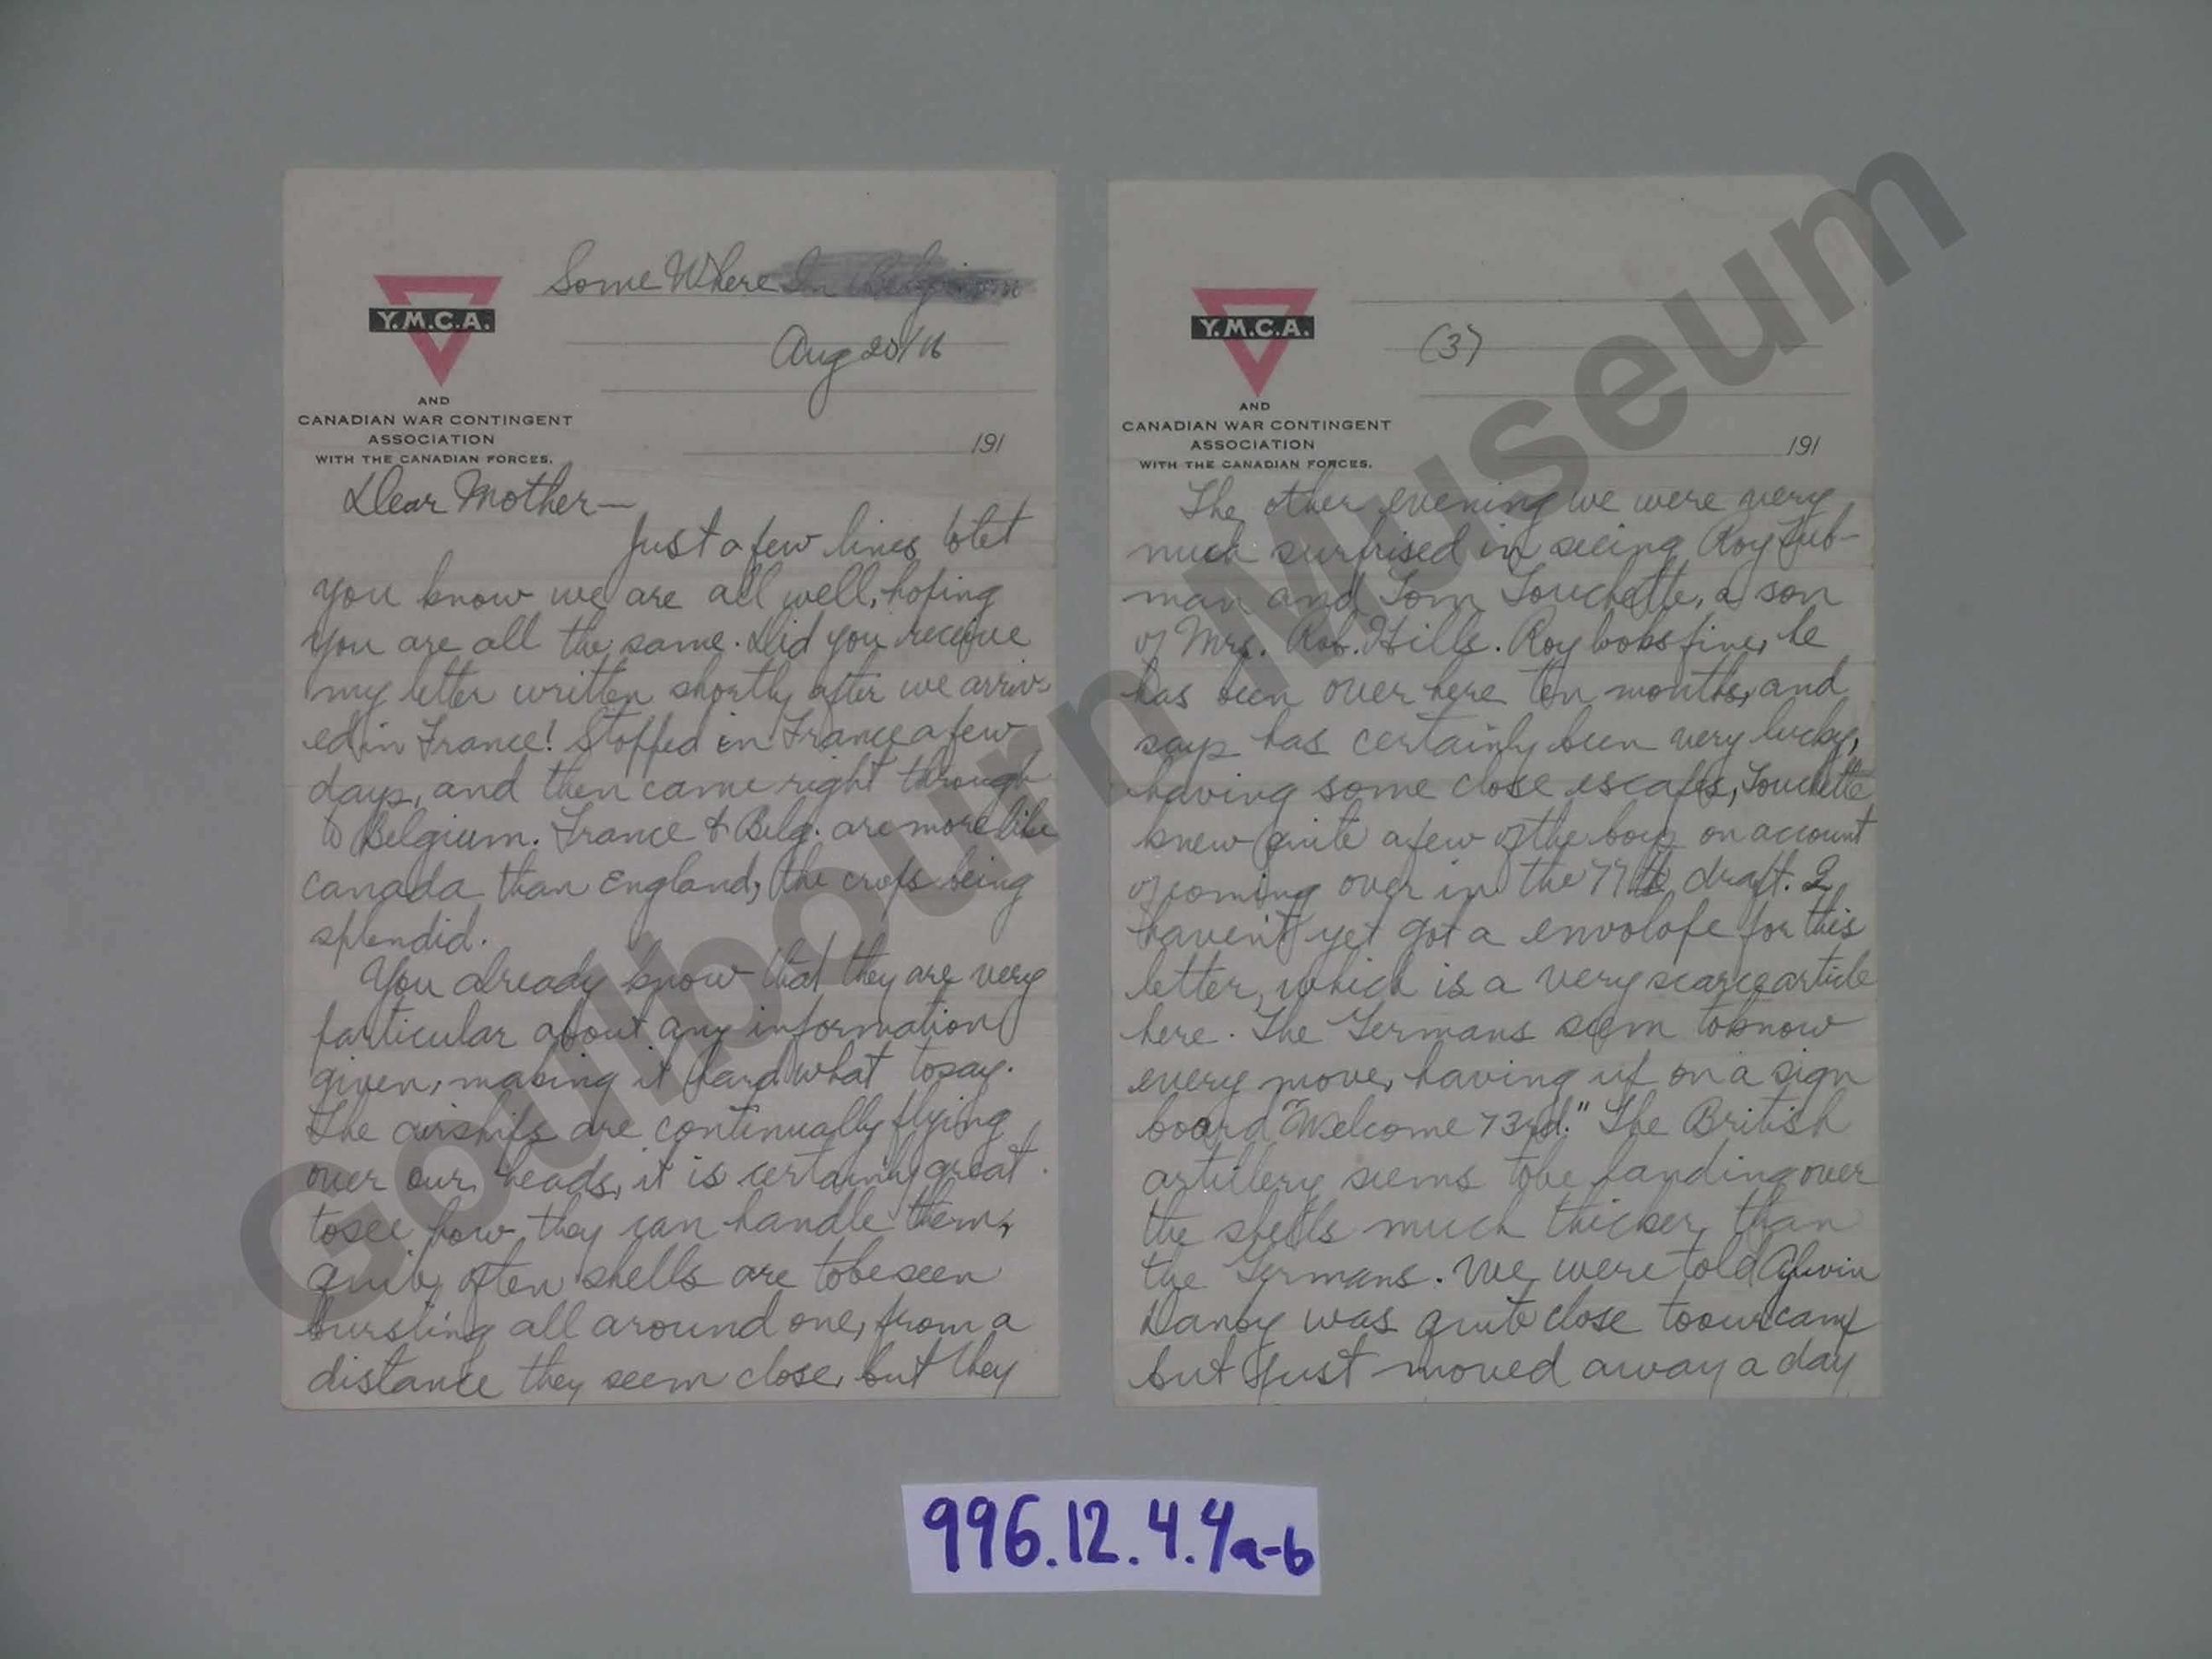 Some Where In Belgium
Y.M.C.A.
Aug 20/16
AND
CANADIAN WAR CONTINGENT
ASSOCIATION
WITH THE CANADIAN FORCES.
191
Dear Mother—
Just a few lines to let
you know we are all well, hoping
you are all the same. Did you receive
my letter written shortly after we arriv
ed in France! Stopped in France a few
days, and then came right through
to Belgium. France & Belg. are more like
Canada than England, the crops being
splendid.
You already know that they are very
particular about any information
given, making it hard what to say.
The airships are continually flying
over our heads, it is certainly great
to see how they can handle them,
quite often shells are to be seen
bursting all around one, from a
distance they seem close, but they
Y.M.C.A.
(3)
AND
CANADIAN WAR CONTINGENT
ASSOCIATION
WITH THE CANADIAN FORCES.
191
The other evening we were very
much surprised in seeing Roy
man and Tom Touchette, a son
of Mrs. Rob. Hills. Roy looks fine, he
has been over here ten months, and
says has certainly been very lucky,
having some close escapes, Touchette
knew quite a few of the boys on account
of coming over in the 77th draft. I
haven't yet got a envolope for this
letter, which is a very scarce article
here. The Germans seem to know
every move, having up on a sign
board "Welcome 73rd." The British
artillery seems to be handing over
the shells much thicker than
the Germans. We were told
was quite close to our camp
but just moved away a day
Goulbourn Museum
996.12.4.4a-b